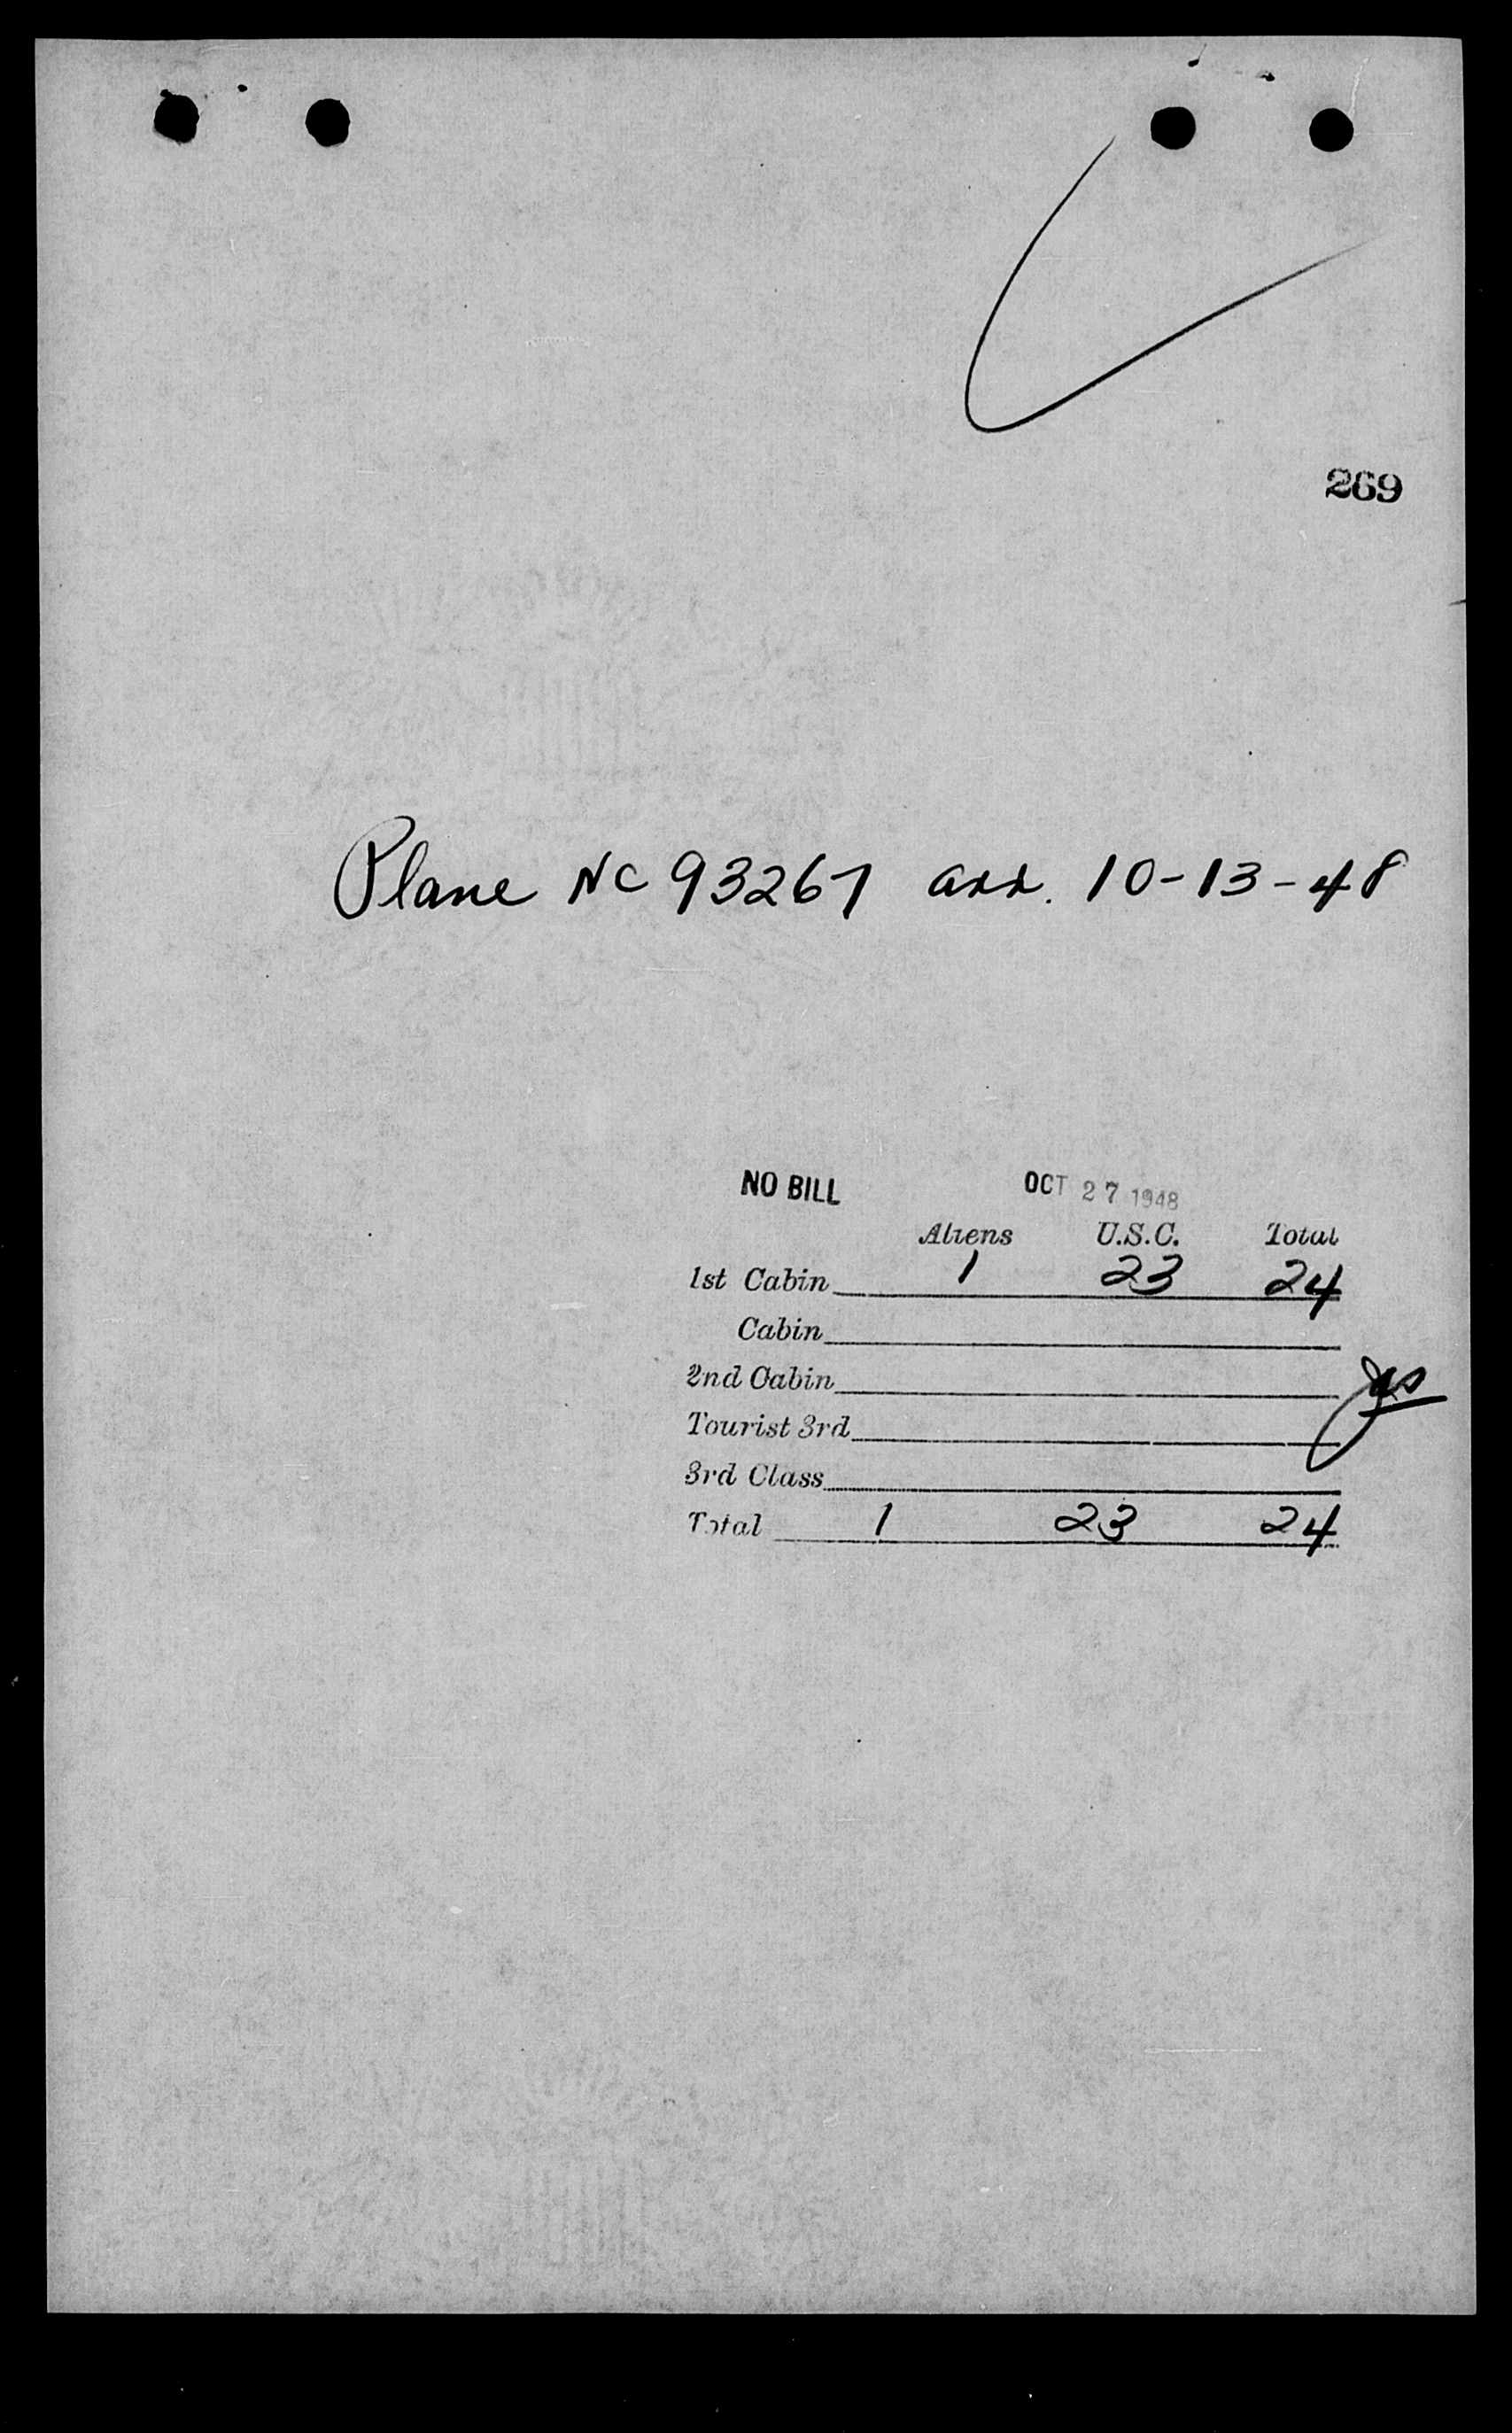 269
Plane NC 93267 arr. 10-13-48
NO BILL OCT 27 1948
Aliens U.S.C. Total
1st Cabin 1 23 24
Cabin
2nd Cabin
Tourist 3rd
3rd Class
Total 1 23 24